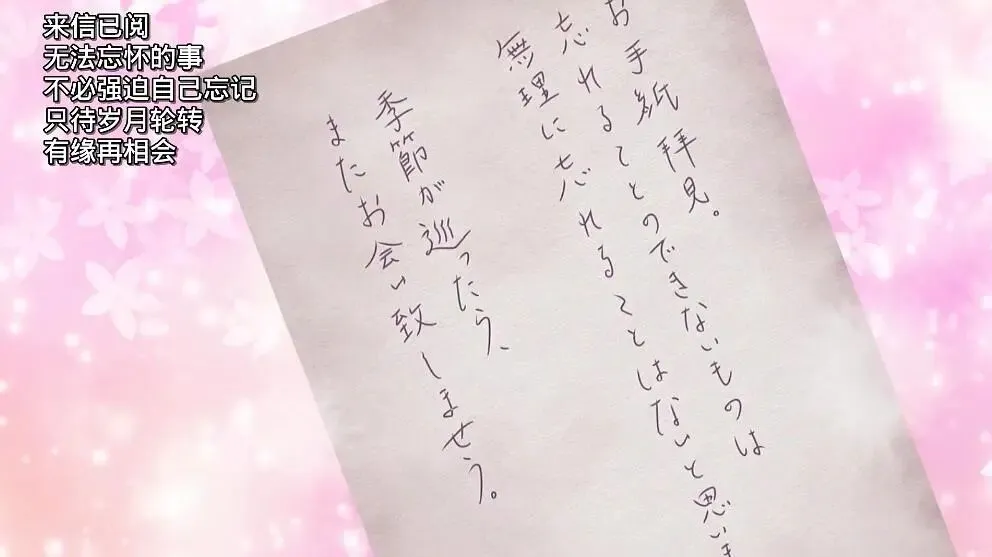 来信已阅
无法忘怀的事
不必强迫自己忘记
只待岁月轮转
有缘再相会
お手紙拝見。
忘れることのできないものは
無理に忘れることはないと思いま
季節が巡ったら、
またお会い致しませう。